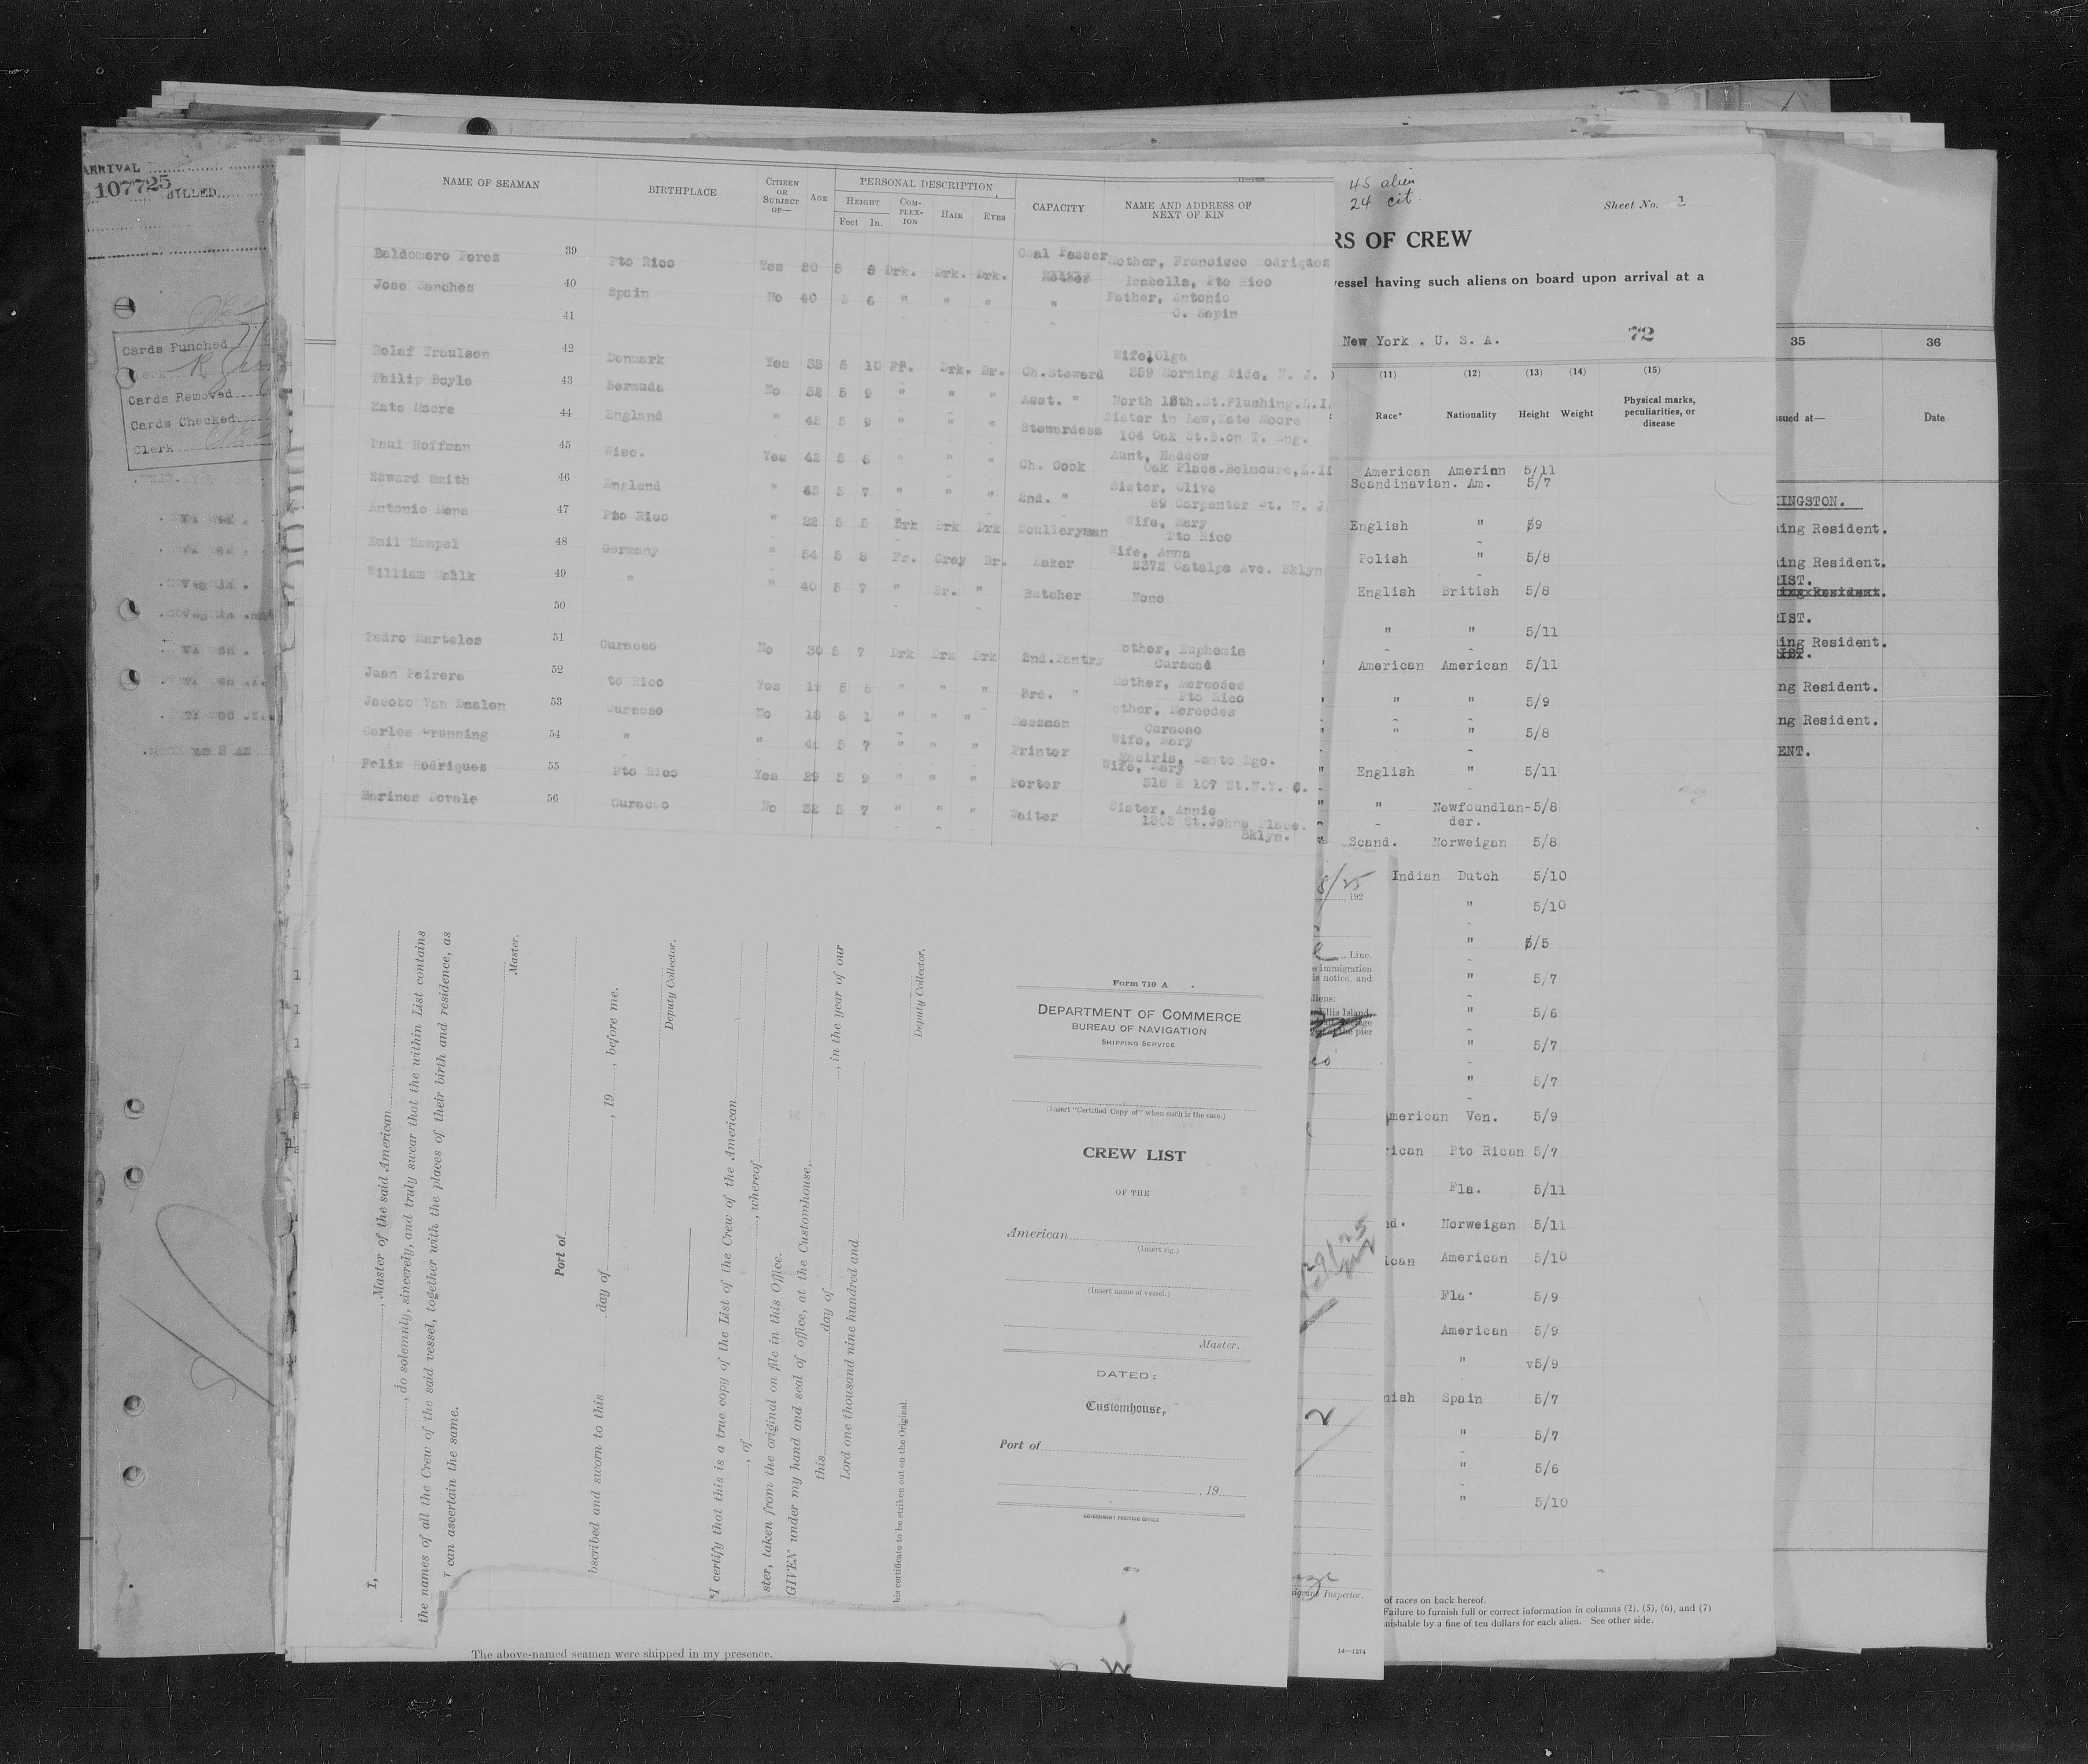 ARRIVAL
107725
BILLED
Cards Punched
Clerk
Cards Removed
Cards Checked
Clerk
NAME OF SEAMAN BIRTHPLACE CITIZEN OR SUBJECT OF— AGE PERSONAL DESCRIPTION CAPACITY NAME AND ADDRESS OF NEXT OF KIN
HEIGHT COM-PLEX-ION HAIR EYES
Feet In.
Baldomero Peres 39 Pto Rico Yes 5 8 Drk. Drk. Drk. Coal Passer Mother, Francisco Rodriques
Isabella, Pto Rico
Jose Sanches 40 Spain No 40 5 6 " " " " Father, Antonio
C. Sapin
41
Rolaf Traulsen 42 Denmark Yes 33 5 10 Fr. Drk. Br. Ch.Steward Wife, Olga
359 Morning Side, N. J.
Philip Boyle 43 Bermuda No 32 5 9 " " " Asst. " North 18th.St.Flushing.L.I
Kate Moore 44 England " 45 5 9 " " " Stewardess Sister in Law,Kate Moore
104 Oak St.S.on T. Eng.
Paul Hoffman 45 Wisc. Yes 42 5 6 " " " Ch. Cook Aunt, Haddow
Oak Place.Belmoure,L.I
Edward Smith 46 England " 45 5 7 " " " 2nd. " Sister, Olive
89 Carpenter St. N. J.
Antonio Mena 47 Pto Rico " 22 5 5 Drk Drk Drk Sculleryman Wife, Mary
Pto Rico
Emil Hampel 48 Germany " 54 5 8 Fr. Gray Br. Baker Wife, Anna
2372 Catalpa Ave. Bklyn
William Mahlk 49 " " 40 5 7 " Br. " Butcher None
50
Pedro Martelos 51 Curacao No 30 5 7 Drk Drk Drk 2nd.Pantry other, Euphemia
Curacao
Juan Peirera 52 to Rico Yes 19 5 6 " " " 3rd. " Mother, Mercedes
Pto Rico
Jacobo Van Daalen 53 Curacao No 18 6 1 " " " Messman other, Mercedes
Curacao
Carlos 54 " " 5 7 " " " Printer Wife, Mary
Santo Dgo.
Felix Rodriques 55 Pto Rico Yes 29 5 9 " " " Porter Wife, Mary
318 E 107 St.N.Y. C.
Marines Dovale 56 Curacao No 32 5 7 " " " Waiter Sister, Annie
1303 St.Johns Place.
Bklyn.
I, , Master of the said American
, do solemnly, sincerely, and truly swear that the within List contains
the names of all the Crew of the said vessel, together with the places of their birth and residence, as
I can ascertain the same.
Master.
Port of
bscribed and sworn to this day of , 19 , before me.
Deputy Collector.
"I certify that this is a true copy of the List of the Crew of the American
, of , whereof
ster, taken from the original on file in this Office.
GIVEN under my hand and seal of office, at the Customhouse,
this day of , in the year of our
Lord one thousand nine hundred and
Deputy Collector.
his certificate to be striken out on the Original.
Form 710 A
DEPARTMENT OF COMMERCE
BUREAU OF NAVIGATION
SHIPPING SERVICE
(Insert "Certified Copy of" when such is the case.)
CREW LIST
OF THE
American
(Insert rig.)
(Insert name of vessel.)
Master.
DATED:
Customhouse,
Port of
, 19
GOVERNMENT PRINTING OFFICE
The above-named seamen were shipped in my presence.
45 alien
24 cit.
Sheet No. 1
RS OF CREW
vessel having such aliens on board upon arrival at a
New York . U. S. A. 72
(11) (12) (13) (14) (15)
Race* Nationality Height Weight Physical marks, peculiarities, or disease
American Amerian 5/11
Scandinavian. Am. 5/7
English " 5/9
Polish " 5/8
English British 5/8
" " 5/11
American American 5/11
" " 5/9
" " 5/8
English " 5/11
" Newfoundlan- 5/8
der.
Scand. Norweigan 5/8
Indian Dutch 5/10
" 5/10
" 5/5
" 5/7
" 5/6
" 5/7
" 5/7
merican Ven. 5/9
rican Pto Rican 5/7
Fla. 5/11
nd. Norweigan 5/11
ican American 5/10
Fla. 5/9
American 5/9
" v5/9
nish Spain 5/7
" 5/7
" 5/6
" 5/10
8/25
, 192
Line.
immigration
is notice, and
liens:
Ellis Island,
the pier
2
Inspector.
14—1274
of races on back hereof.
Failure to furnish full or correct information in columns (2), (5), (6), and (7)
nishable by a fine of ten dollars for each alien. See other side.
35 36
sued at— Date
KINGSTON.
ing Resident.
ing Resident.
RIST.
RIST.
ing Resident.
ng Resident.
ng Resident.
ENT.